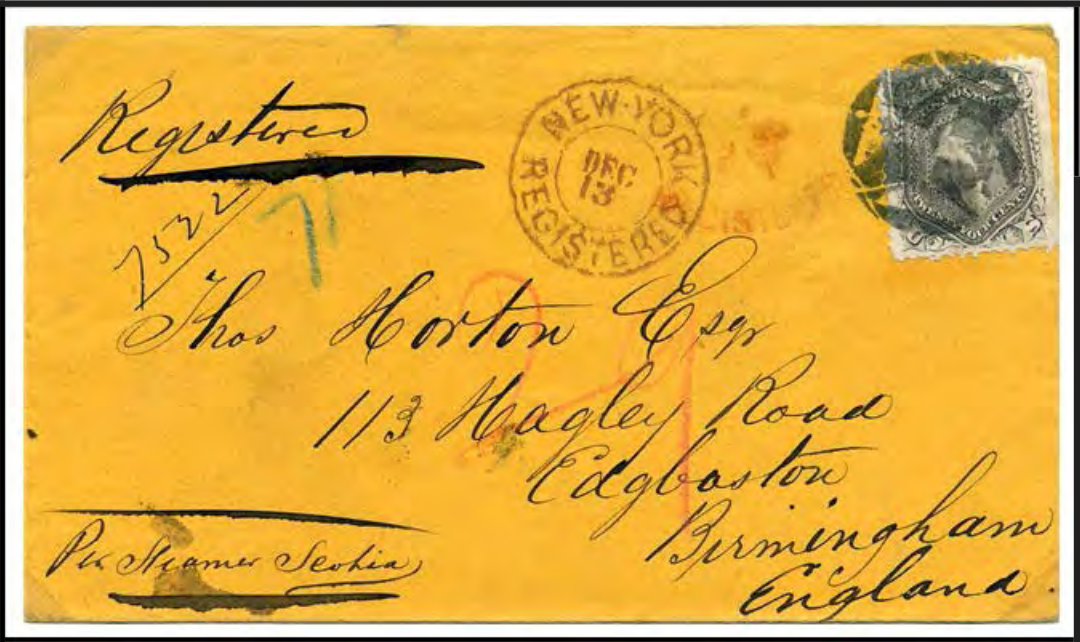 Registered
7522
NEW-YORK
DEC
13
REGISTERED
Thos Horton Esqr
113 Hagley Road
Edgbaston
Birmingham
England.
Per Steamer Scotia